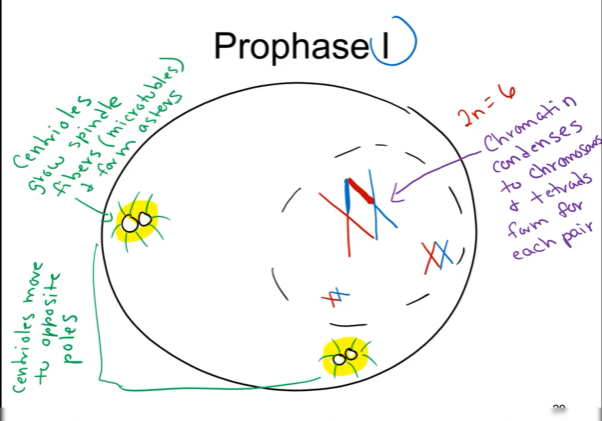 Prophase I
Centrioles
grow spindle
fibers (microtubles)
& form asters
2n=6
Chromatin
condenses
to chromosomes
& tetrads
form for
each pair
Centrioles move
to opposite
poles